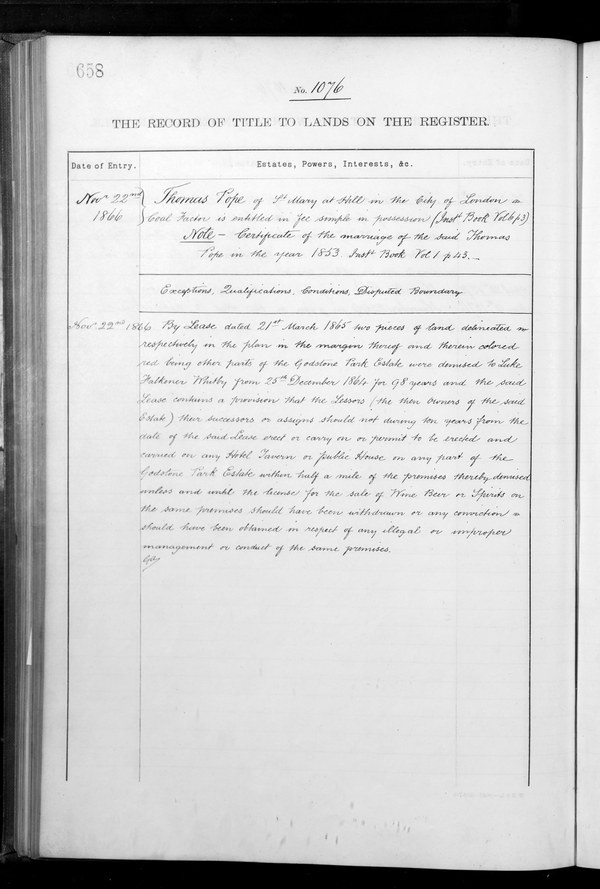 658
No. 1076
THE RECORD OF TITLE TO LANDS ON THE REGISTER.
Date of Entry.
Estates, Powers, Interests, &c.
Novr 22nd
1866
Thomas Pope of St Mary at Hill in the City of London
Coal Factor is entitled in fee simple in possession (Inst Book Vol 6 p3)
Note – Certificate of the marriage of the said Thomas
Pope in the year 1853. Inst Book Vol 1 p 43. –
Exceptions, Qualifications, Conditions, Disputed Boundary
Novr 22nd 1866
By Lease dated 21st March 1865 two pieces of land delineated
respectively in the plan in the margin thereof and therein colored
red being other parts of the Godstone Park Estate were demised to Luke
Falkener Whitby from 25th December 1864 for 98 years and the said
Lease contains a provision that the Lessors (the then Owners of the said
Estate) their successors or assigns should not during ten years from the
date of the said Lease erect or carry on or permit to be erected and
carried on any Hotel Tavern or Public House on any part of the
Godstone Park Estate within half a mile of the premises thereby demised
unless and until the license for the sale of Wine Beer or Spirits on
the same premises should have been withdrawn or any conviction
should have been obtained in respect of any illegal or improper
management or conduct of the same premises.